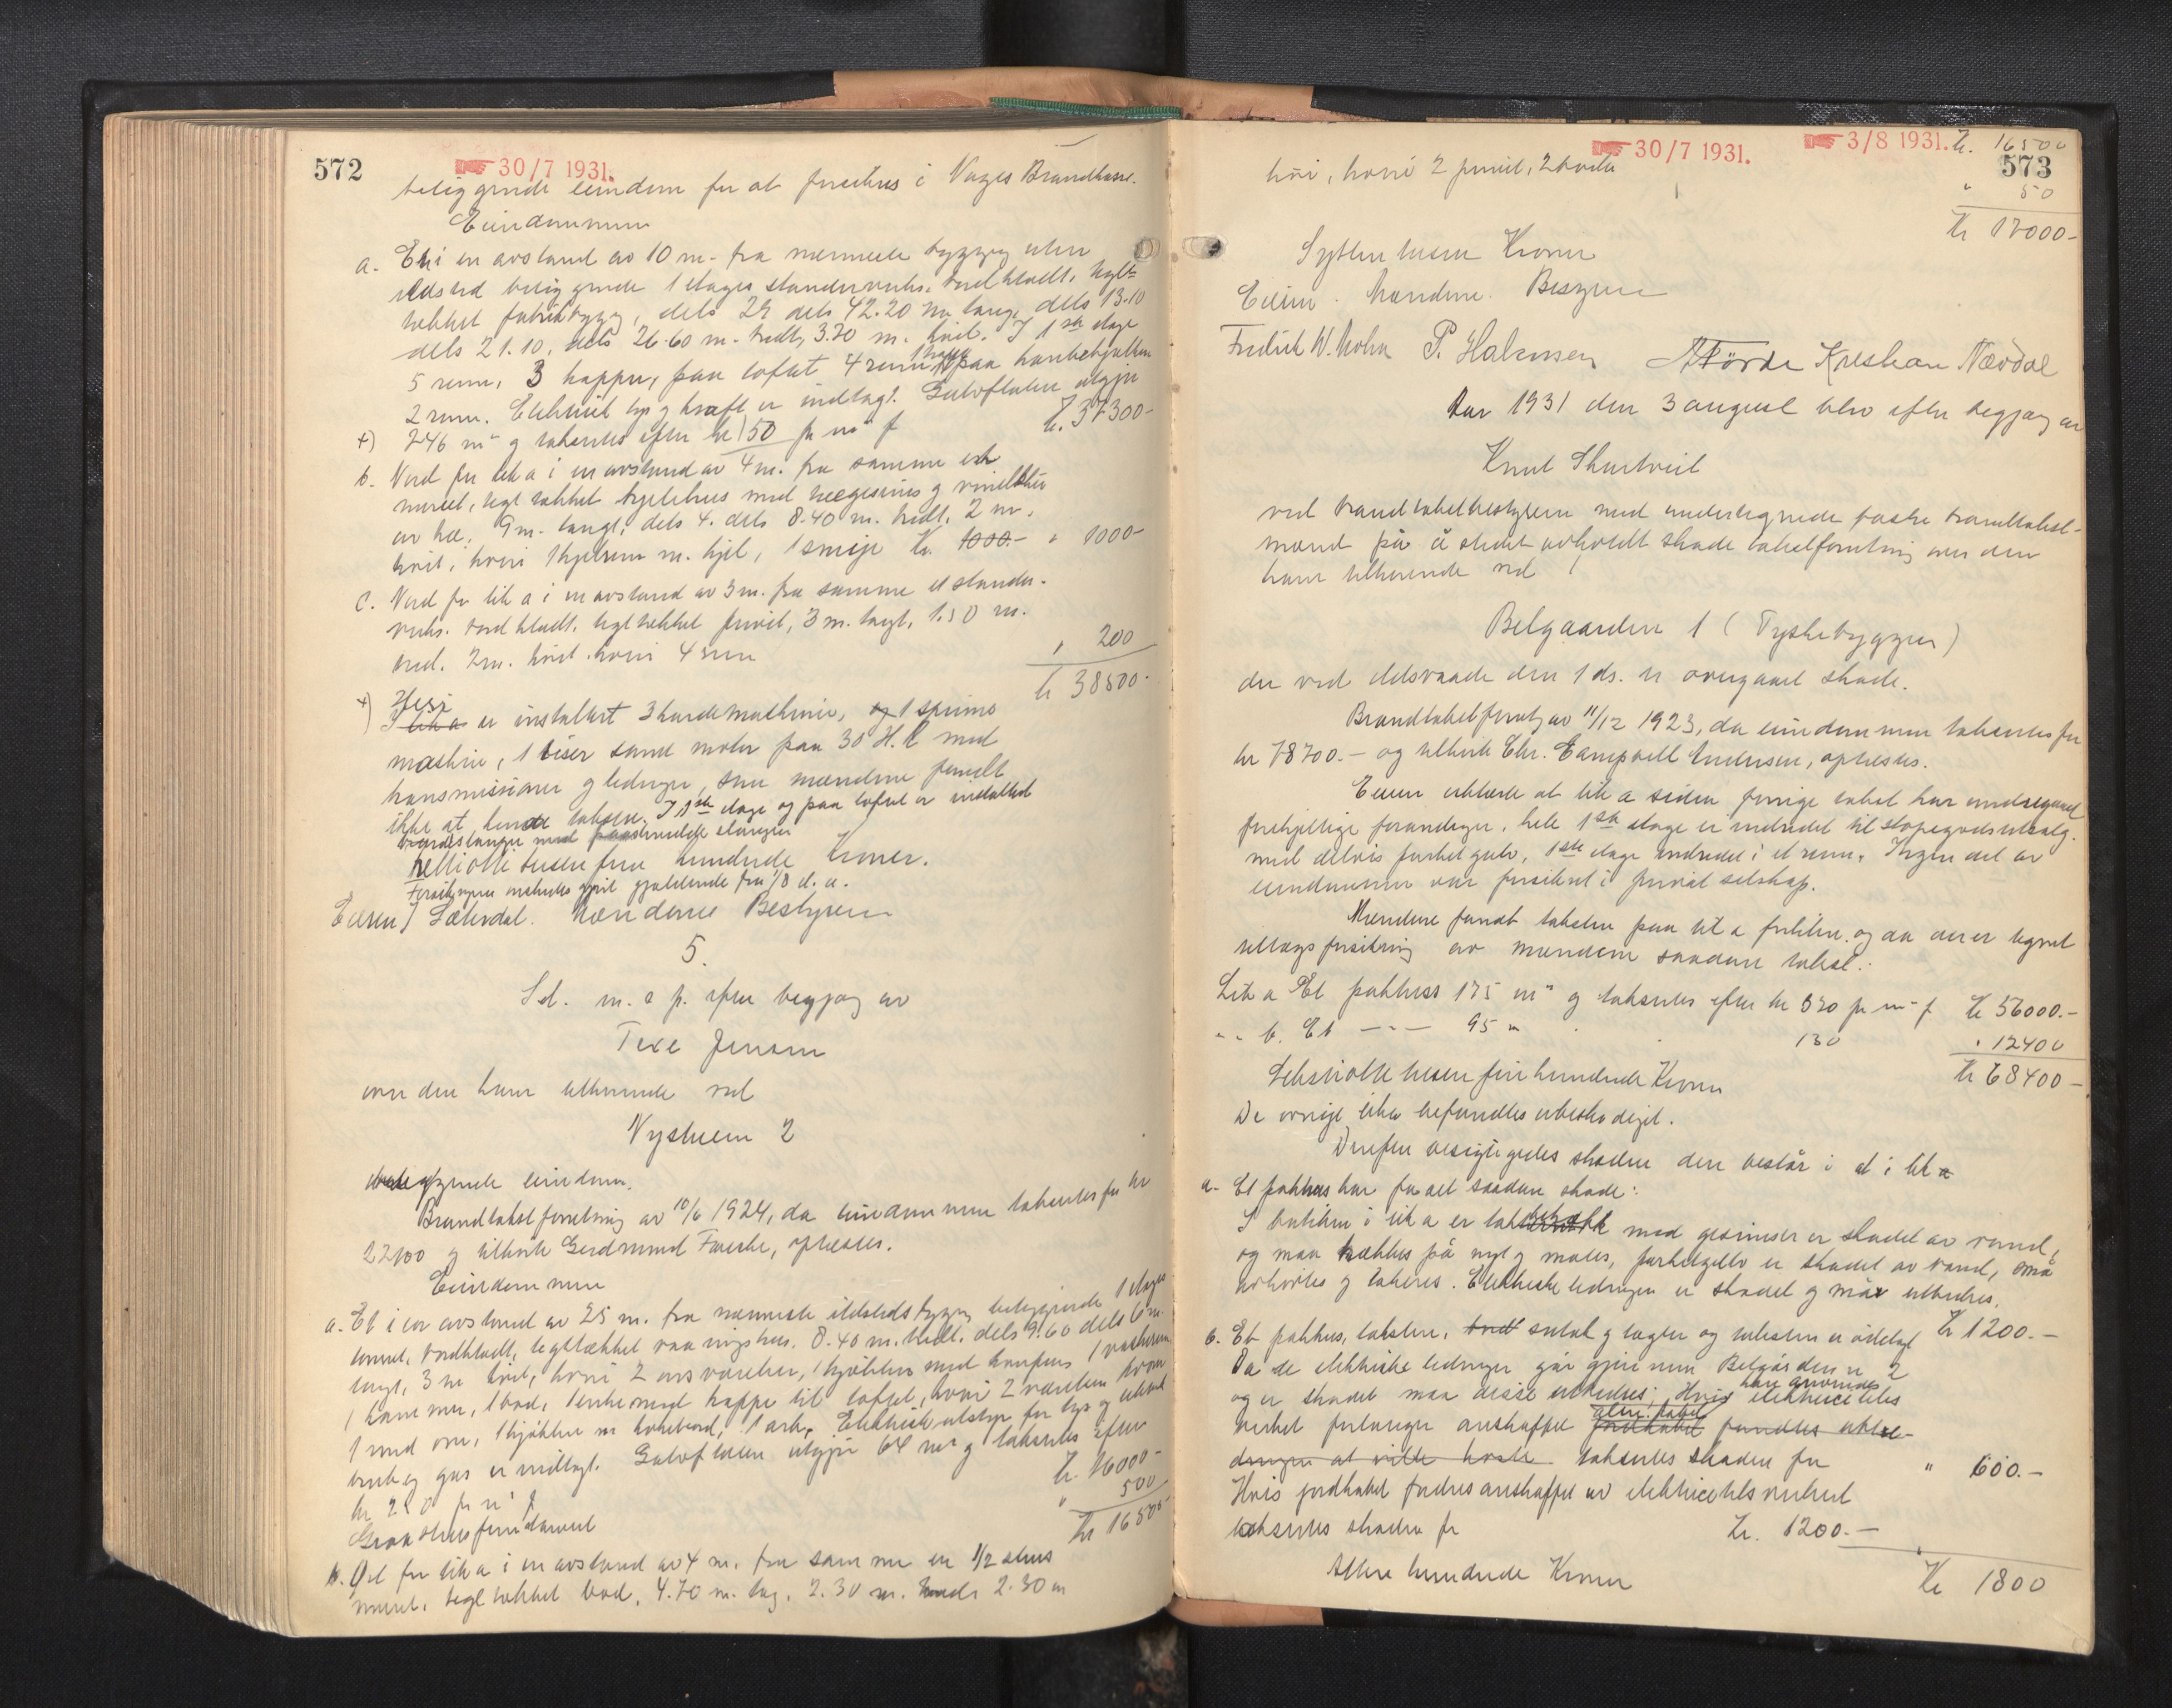 572
30/7 1931.
beliggende eiendom for at forsikres i Norges Brandkasse.
Eiendommen
a. Et i en avstand av 10 m. fra nærmeste bygning uten
ildsted beliggende 1 etages standerverks. bordklædt. tegl-
tækket fabrikbygg, dels 22 dels 42.20 m lang, dels 13.10
dels 21.10, dels 26.60 m. bredt, 3.70 m. høit. I 1ste etage
5 rum, 3 trapper, paa loftet 4 rum, paa hanebjelken
2 rum. Elektrisk lys og kraft er indlagt. Gulvflaten utgjør
+) 746 m² og takseres efter kr 50 pr m² f kr. 37300-
b. Nord for lit a i en avstand av 4 m. fra samme et
muret, tegltækket kjelehus med
av træ, 9 m. langt, dels 4. dels 8.40 m. bredt, 2 m.
høit, hvori 1 kjelrum m. kjel, 1 smije Kr. 1000.- " 1000-
c. Nord for lit a i en avstand av 3 m. fra samme et stander-
verks. bordklædt. tegltækket privet, 3 m. langt, 1.50 m.
bred. 2 m. høit. hvori 4 rum " 200
kr 38500-
+) I lit a er installert 3 kardemaskiner, og 1 spinne
maskine, 1 samt motor paa 30 H.K med
transmissioner og ledninger, som mændene fandt
ikke at kunde taksere. I 1ste etage og paa loftet er installert
brandslanger med slanger
otte tusen fem hundrede Kroner.
Forsikringen ønskes gjældende fra 1/8 d. a.
Eieren / Sæterdal. Mændene Bestyreren
5.
S.d. m. s p. efter begjæring av
Jenssen
over den ham tilhørende ved
Nystuen 2
beliggende eiendom.
Brandtakstforretning av 10/6 1924, da eiendommen takseredes for kr
22100 og tilhørte Gerdmund Farestve, oplæstes.
Eiendommen
a. Et i en avstand av 25 m. fra nærmeste ildsteds bygning beliggende 1 etages
tømret, bordklædt, tegltækket vaaningshus. 8.40 m. bredt. dels 9.60 dels 6 m.
langt, 3 m høit, hvori 2 arsværelser, 1 kjøkken med komfur, 1 vaskerum
1 kammer, 1 bod, 1 entre med trappe til loftet, hvori 2 værelser hvorav
1 med ovn, 1 kjøkken m kokebord, 1 ark. Elektrisk utstyr for lys og
og gas er indlagt. Gulvflaten utgjør 64 m² og takseres efter
kr 250 pr m² f kr. 16000-
Graastensfundament " 500
Kr 16500-
b. Øst for lit a i en avstand av 4 m. fra samme en 1/2 stens
muret. tegltækket bod, 4.70 m. lang, 2.30 m. bred. 2.30 m
30/7 1931.
3/8 1931.
573
høi, hvori 2 privet, 2 boder
kr. 16500
" 50
Kr 17000-
Sytten tusen Kroner
Eieren. Mændene. Bestyreren
Fredrik W. Mohn P. Hakonsen A Førde Kristian Nævdal
Aar 1931 den 3 august blev efter begjæring av
Knut Skurtveit
ved brandtakstbestyreren med undertegnede faste brandtakst-
mænd på å stedet avholdt skade takstforretning over den
ham tilhørende ved
Belgaarden 1 (Tyskebryggen)
der ved ildsvaade den 1 ds. er overgaaet skade.
Brandtakstforretn av 11/12 1923, da eiendommen takseredes for
kr 78700.- og tilhørte Chr. Campbell Andersen, oplæstes.
Eieren erklærte at lit a siden forrige takst har undergaaet
forskjellige forandringer. hele 1ste etage er indredet til utsalg.
med delvis parketgulv, 1ste etage indredet i et rum. Ingen del av
eiendommen var forsikret i privat selskap.
Mændene fandt taksten paa lit a forliten. og da der er tegnet
tillægsforsikring av mændene saadan takst:
Lit a Et pakhus 175 m² og takseres efter kr 320 pr m² f Kr 56000.-
" " b. Et - " - 95 " 130 " 12400
Seksti otte tusen fire hundrede Kroner Kr 68400-
De øvrige litra befandtes ubeskadiget.
Derefter besigtigedes skaden der består i at i lit a
a. Et pakhus har faaet saadan skade:
I butikken i lit a er med gesimser er skadet av vand,
og maa trækkes på nyt og males, parketgulv er skadet av vand, må
avhøvles og lakeres. Elektriske ledninger er skadet og må utbedres.
b. Et pakhus, taksten. sutak og lægter og taksten er ødelagt Kr 1200.-
Da de elektriske ledninger går gjennem Belgården nr 2
og er skadet maa disse utbedres; Hvis elektricitets
kan anvendes
verket forlanger anskaffet jordkabel fandtes utbe-
dringen at ville koste takseres skaden for " 600.-
Hvis jordkabel fordres anskaffet av elektricitetsverket
takseres skaden for Kr. 1200.-
Atten hundrede Kroner Kr 1800